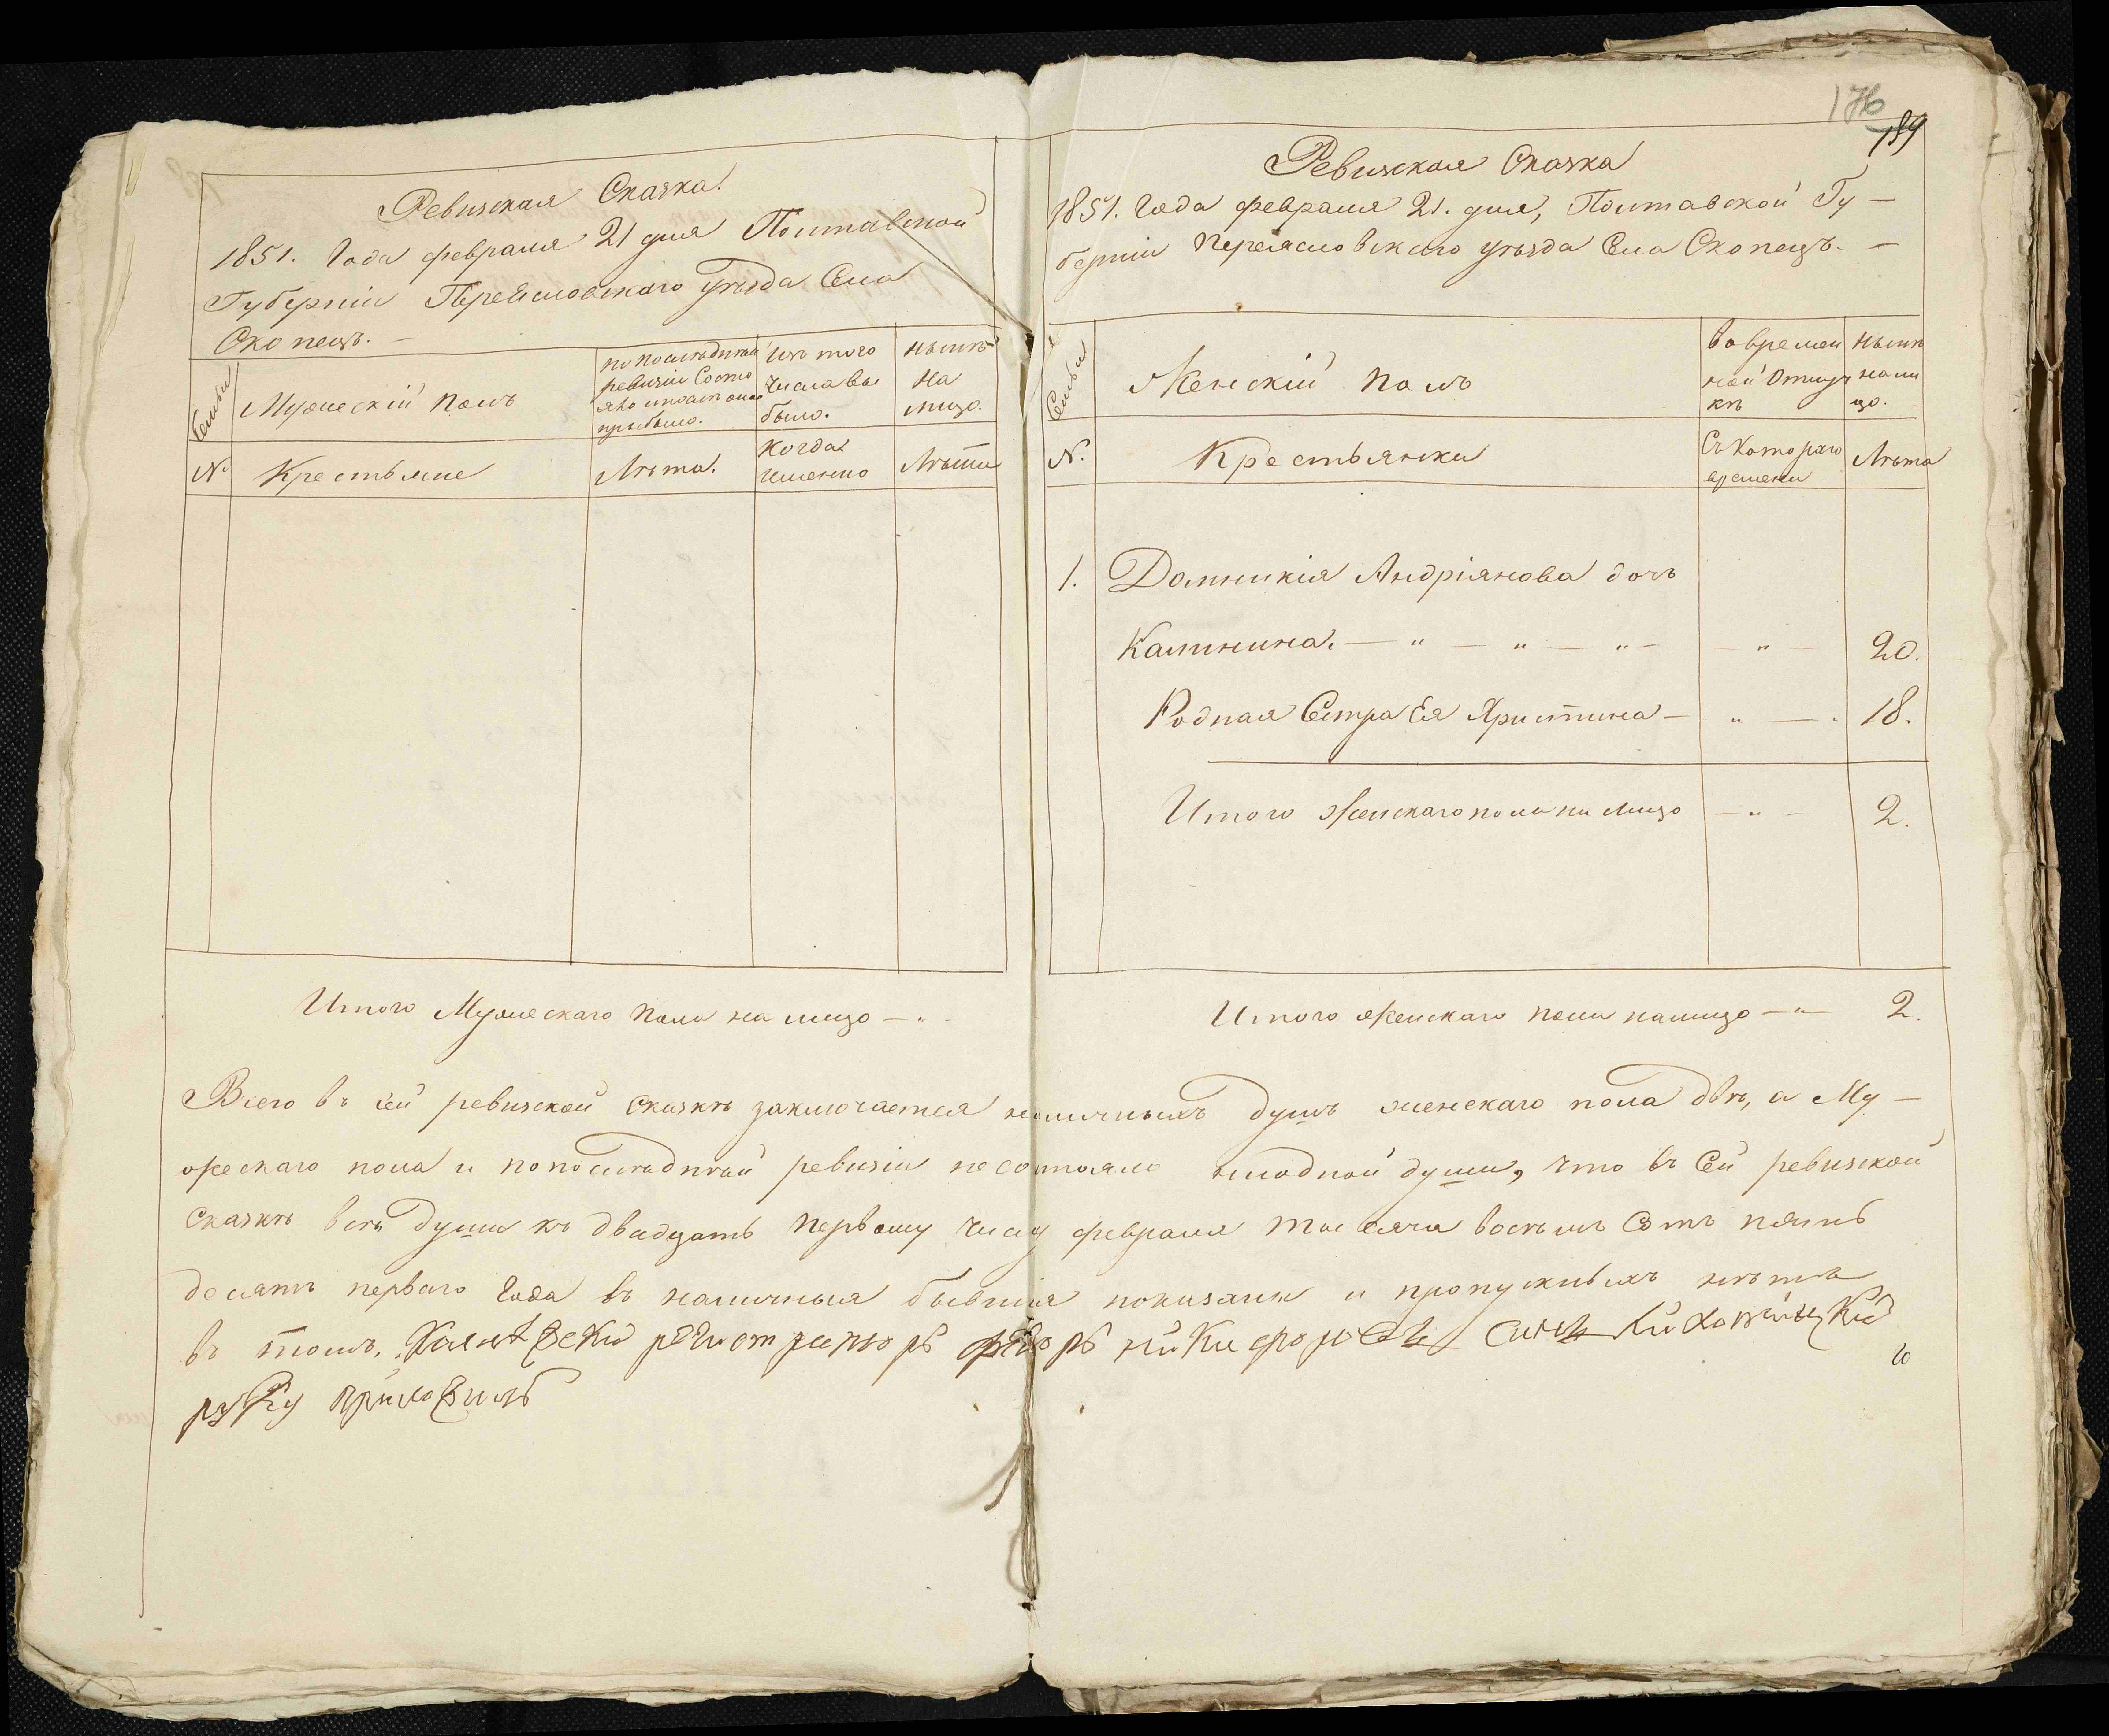 Ревизская Сказка.
1851. Года февраля 21 дня Полтавской
Губерніи Переясловскаго уѣзда Села
Скопецъ. —
Семьи
Мужескій полъ
по послѣдней
ревизіи Состо
яло и послѣ оной
прибыло.
Изъ того
числа вы
было.
нынѣ
На
лицо.
№
Крестьяне
Лѣта.
Когда
именно
Лѣта
Итого Мужескаго пола на лицо — „ -
176
189
Ревизская Сказка
1851. Года февраля 21. дня, Полтавской Гу —
берніи Переясловскаго уѣзда Села Скопецъ. —
Семьи
Женскій полъ
во времен
ной Отлуч
кѣ
нынѣ
на ли
цо.
№.
Крестьянки
Съ котораго
времени
Лѣта
1. Домникія Андріянова дочь
Калинина. — „ — „ — „ - — „ — 20.
Родная Сестра Ея Христина — „ — . 18.
Итого Женскаго пола на лицо — „ - 2.
Итого женскаго пола налицо — „ — 2.
Всего въ сей ревизской сказкѣ заключается наличныхъ душъ женскаго пола двѣ, а Му —
жескаго пола и попослѣдней ревизіи несостояло ниодной души, что въ Сей ревизской
сказкѣ всѣ души къ двадцать первому числу февраля тысяча восемь Сотъ пять
десятъ перваго Года въ наличныя бывшія показаны и пропускныхъ нѣтъ
въ томъ. регистраторъ
руку приложилъ